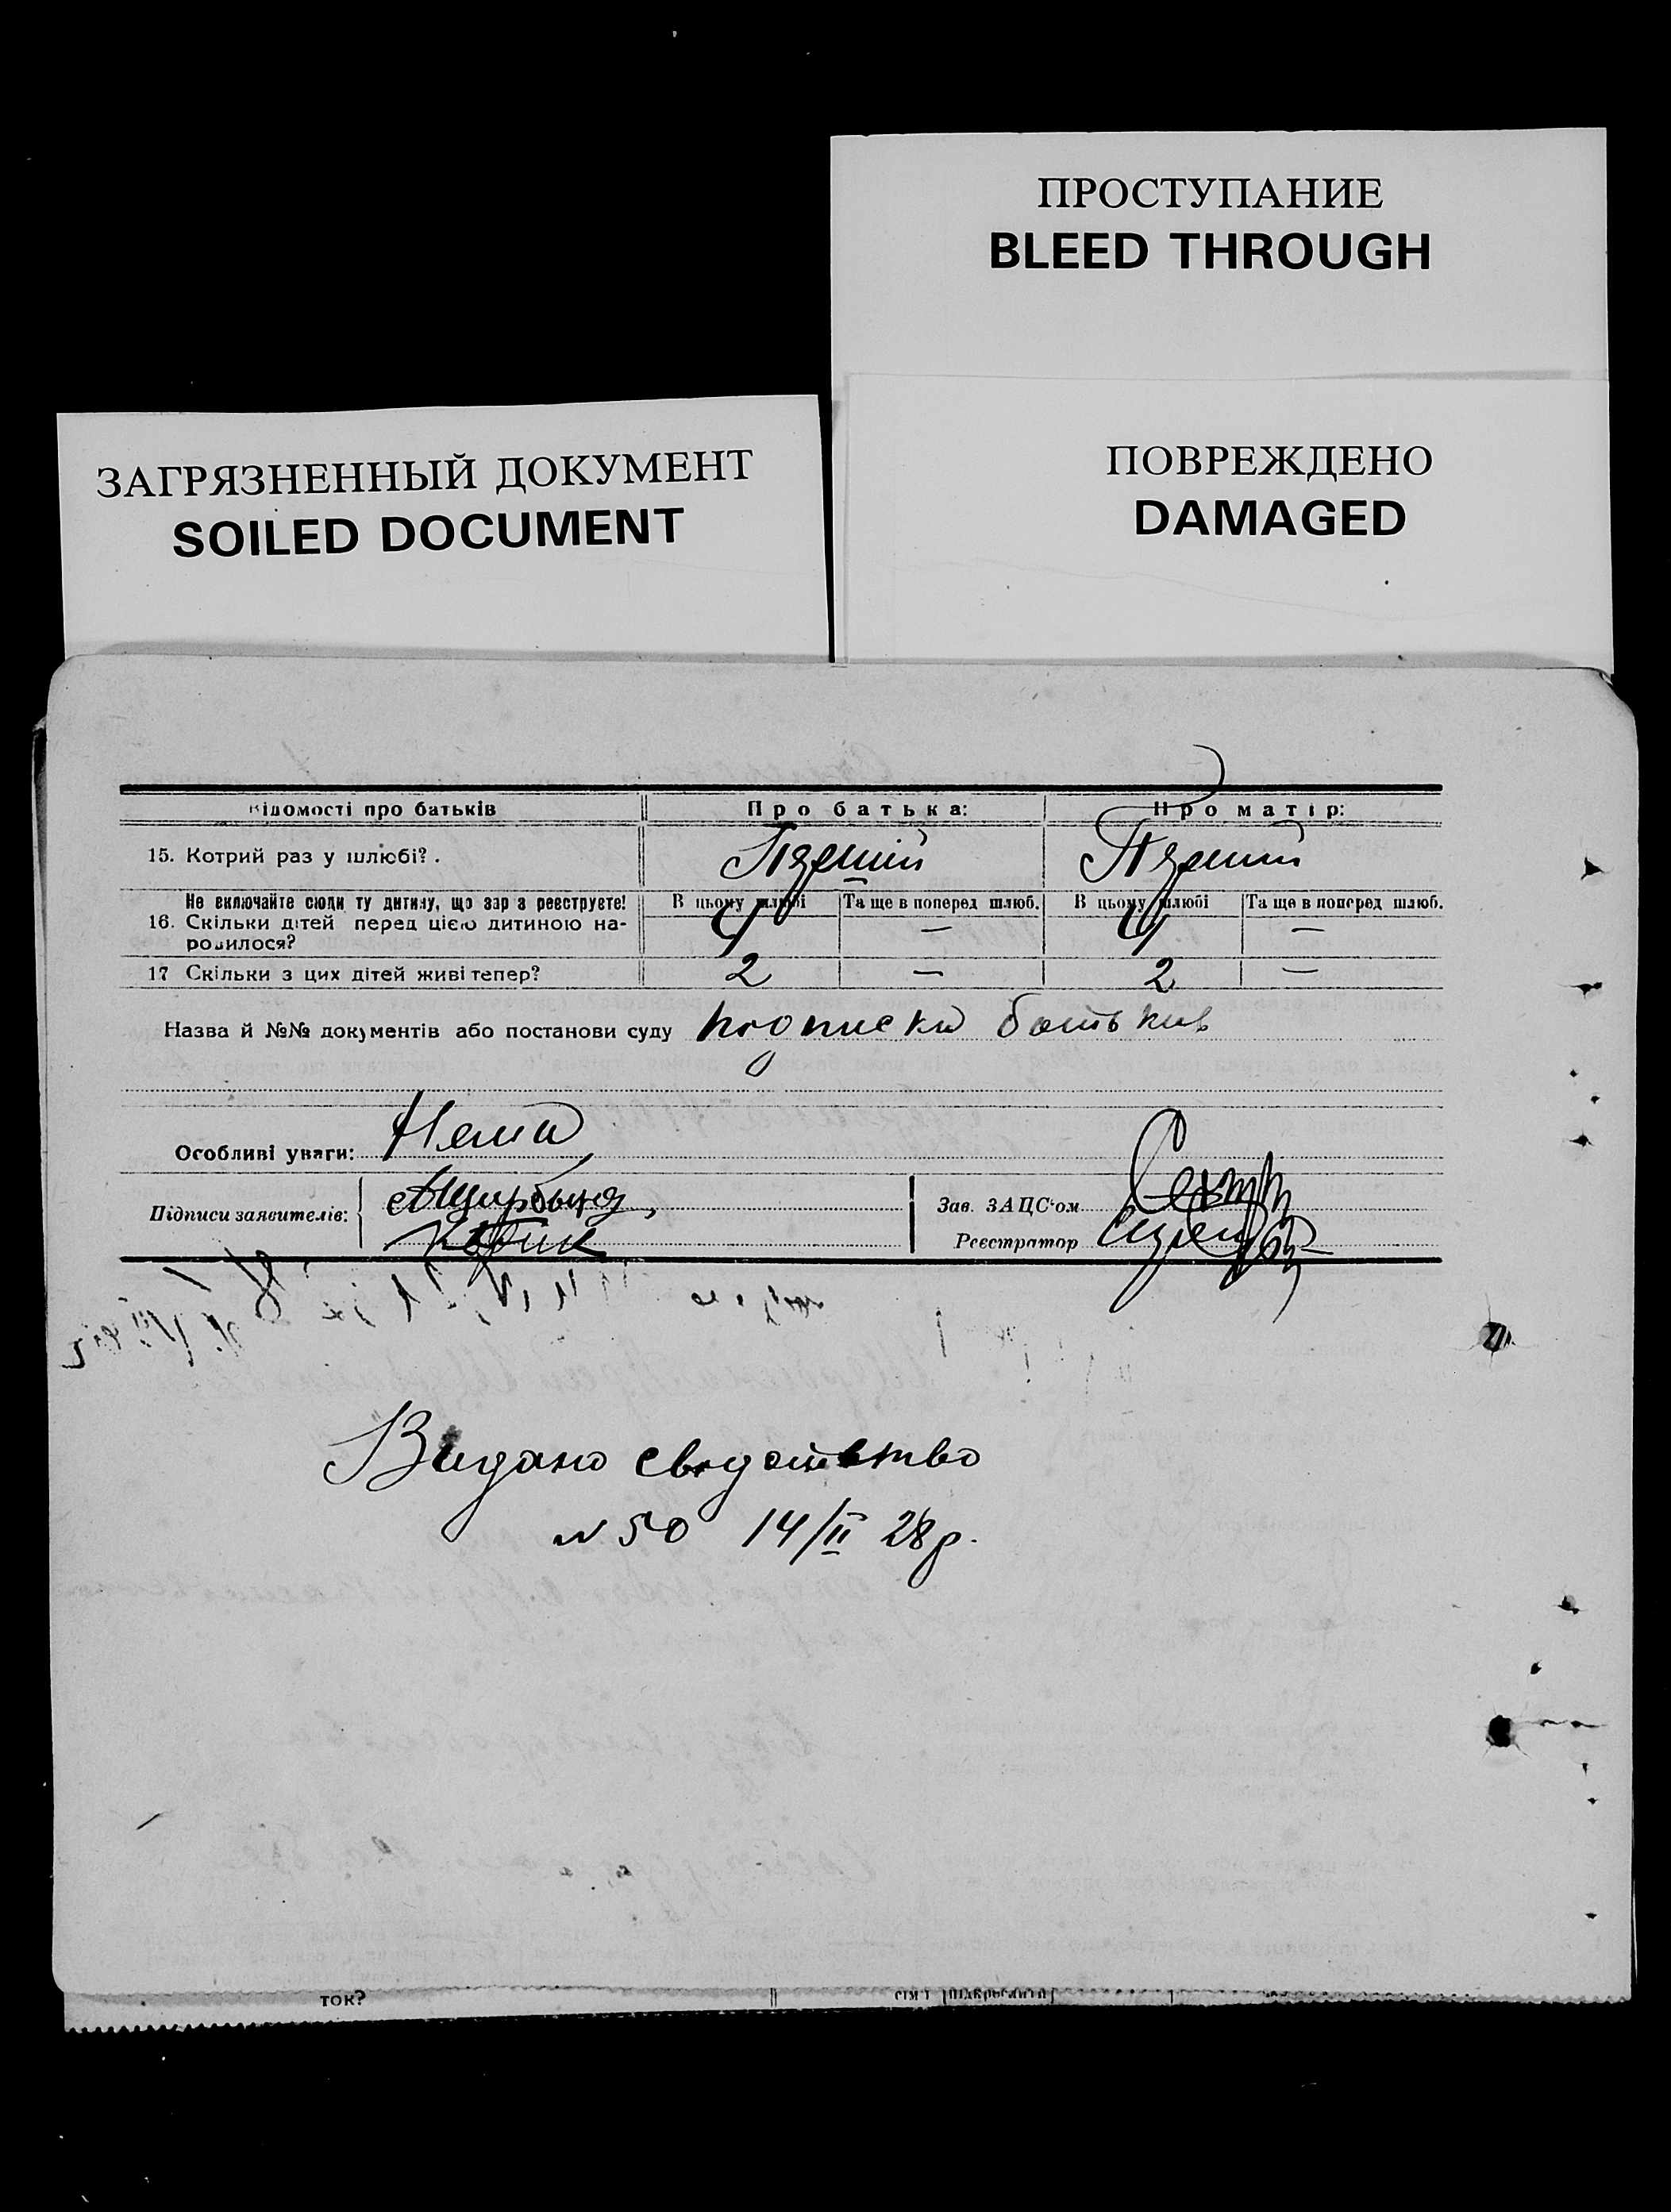 ПРОСТУПАНИЕ
BLEED THROUGH
ЗАГРЯЗНЕННЫЙ ДОКУМЕНТ
SOILED DOCUMENT
ПОВРЕЖДЕНО
DAMAGED
Відомості про батьків Про батька: Про матір:
15. Котрий раз у шлюбі? . Перший Перший
Не включайте сюди ту дитину, що зараз реєструєте! В цьому шлюбі Та ще в поперед шлюб. В цьому шлюбі Та ще в поперед шлюб.
16. Скільки дітей перед цією дитиною на- 4 — 4 —
родилося?
17 Скільки з цих дітей живі тепер? 2 — 2 —
Назва й №№ документів або постанови суду батьків
Особливі уваги: Нема
Підписи заявителів: Щирбина Зав. ЗАЦС'ом
Реєстратор
Видано свідоцтво
N 50 14/II 28 р.
ток?